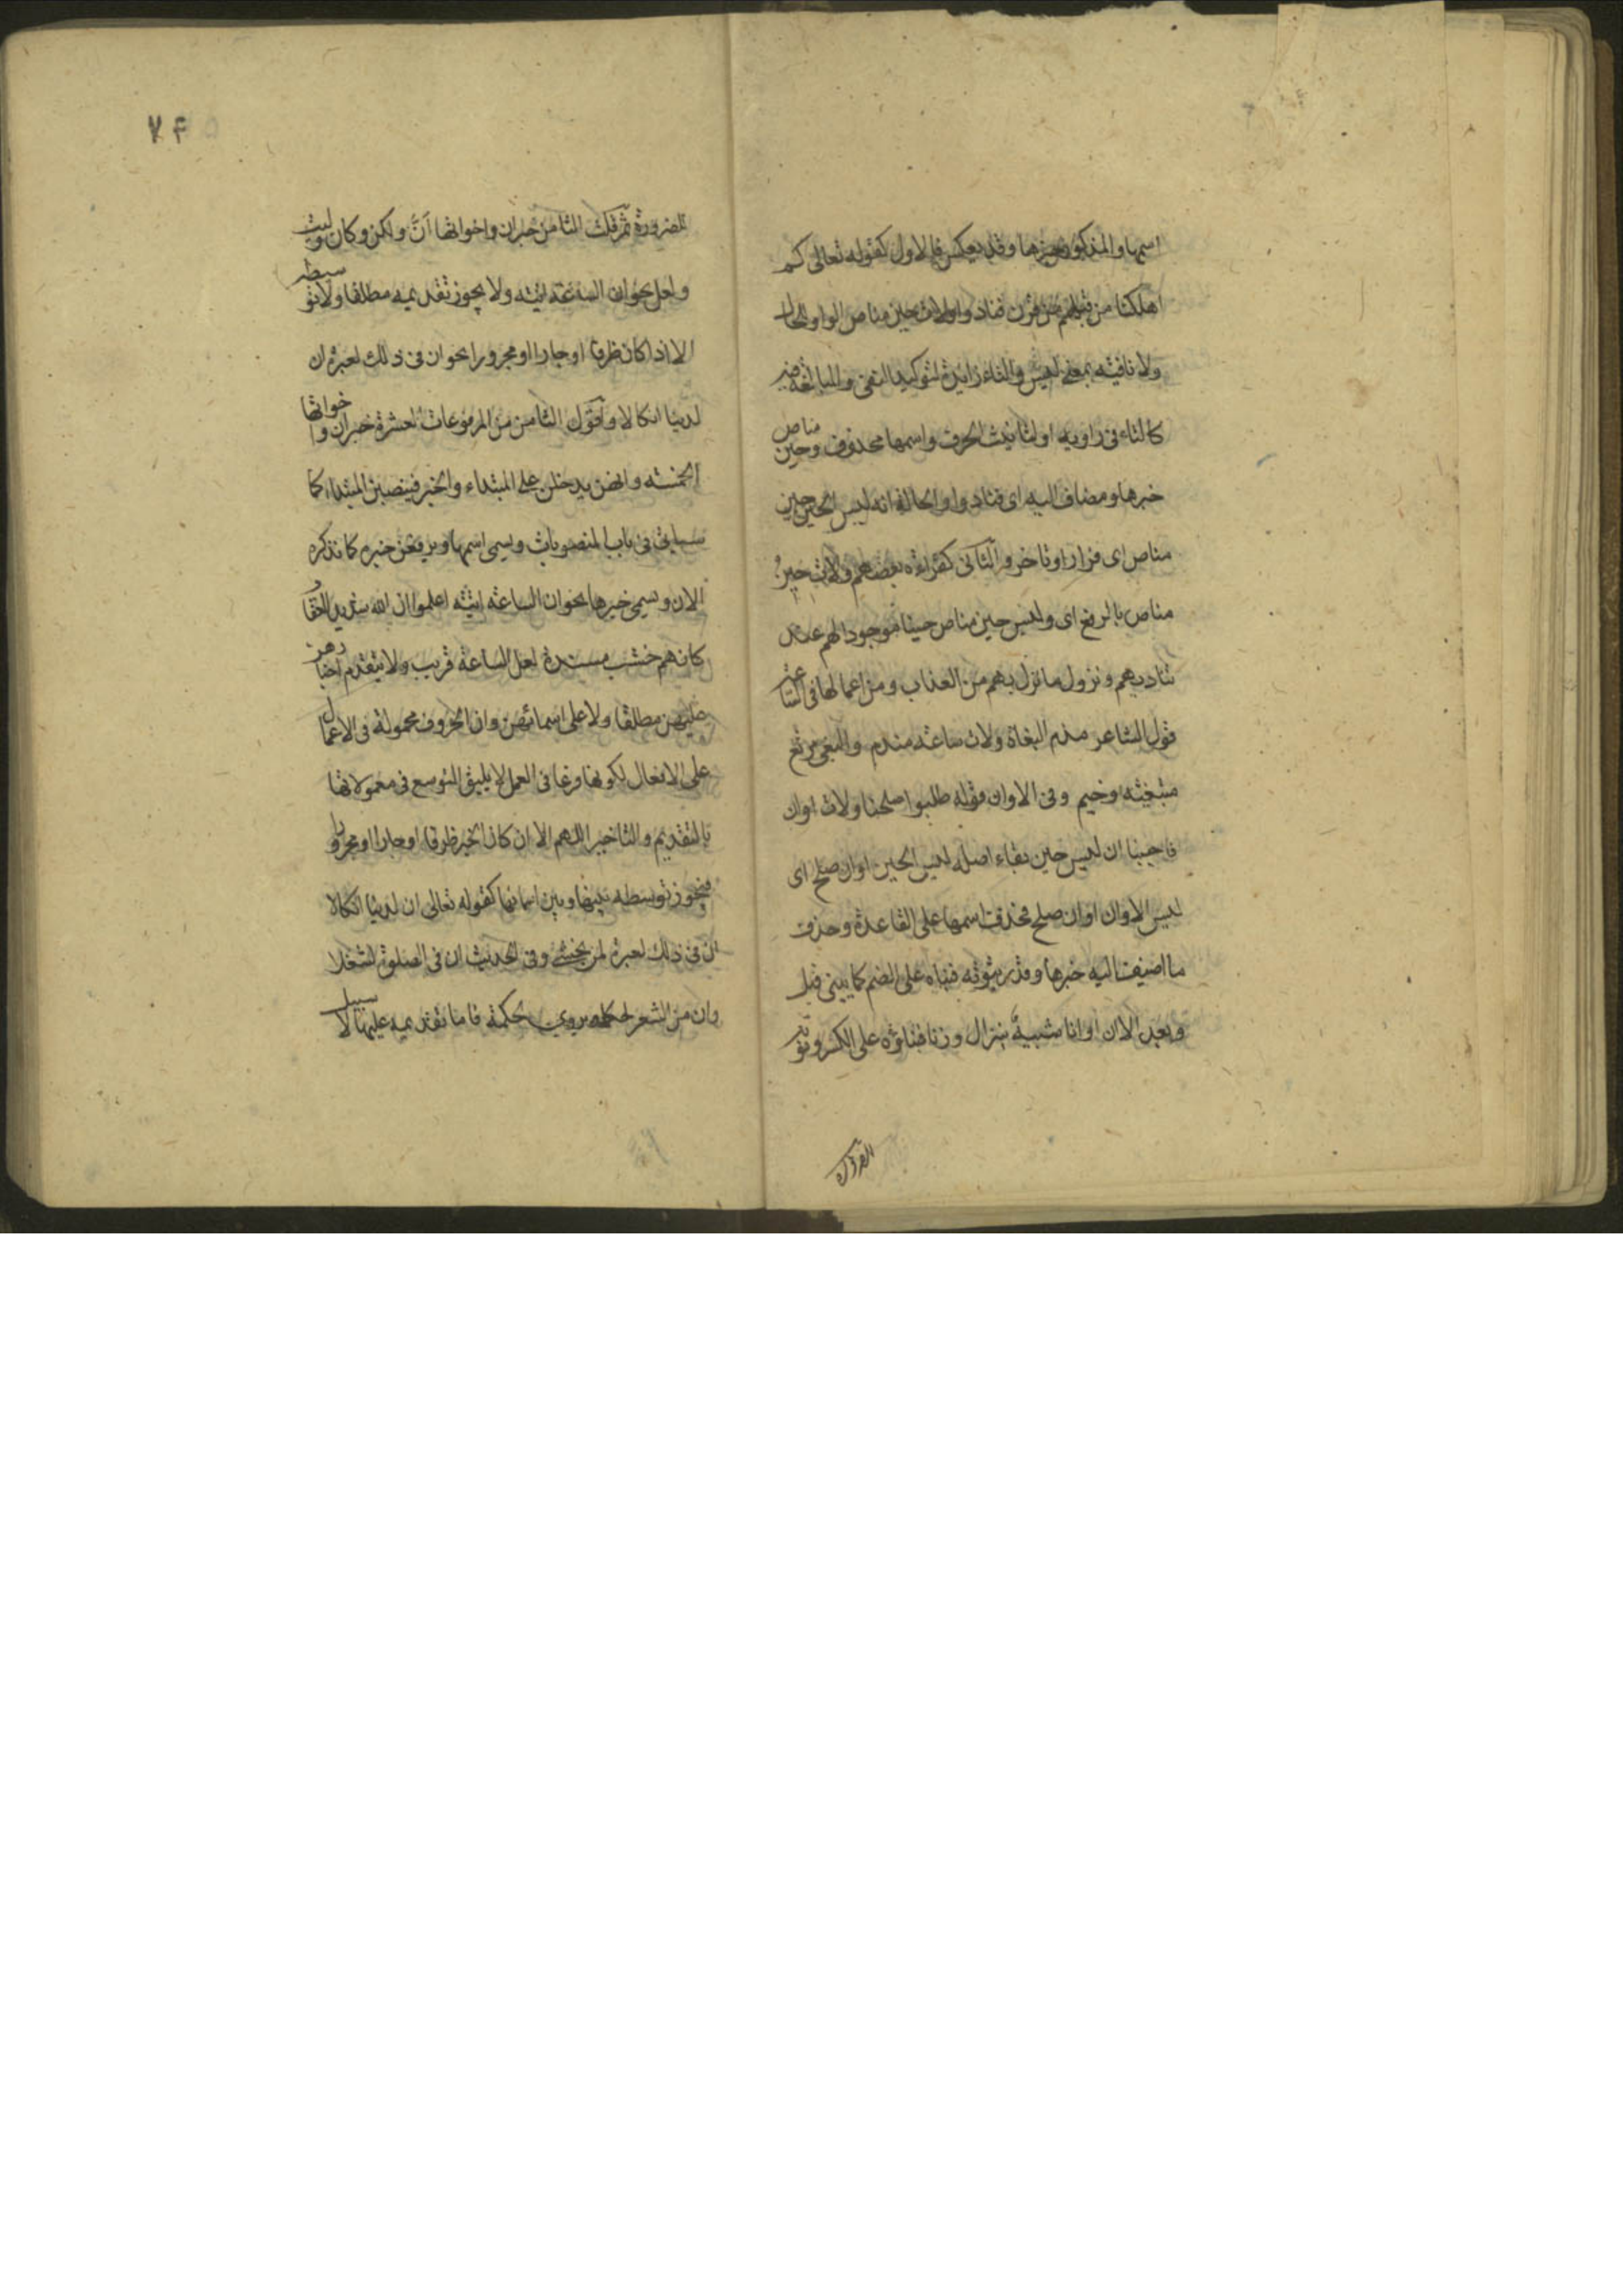 اسمها والمذكور خبرها وقد يعكس فالاول كقوله تعالى كم
اهلكنا من قبلهم من قرن فنادوا ولات حين مناص الواو للحال
ولا نافيته بمعنى ليس والتاء زايدة لتوكيد النفى والمبالغة فيه
كالتاء فى راويه او لتانيث الحرف واسمها محذوف وحين مناص
خبرها ومضاف اليه اى فنادوا والحالة انه ليس الحين حين
مناص اى فرار او تاخر والثانى كقراءة بعضهم ولات حينُ
مناص بالرفع اى وليس حين مناص حينا موجودا لهم عند
تناديهم ونزول ما نزل بهم من العذاب ومن اعمالها فى الساعة
قول الشاعر مندم البغاة ولات ساعة مندم والبغى مرتع
مبتغيته وخيم وفى الاوان قوله طلبوا صلحنا ولات اوان
فاجبنا ان ليس حين بقاء اصله ليس الحين اوان صلح اى
ليس الاوان اوان صلح فحذفت اسمها على القاعدة وحذف
ما اضيفت اليه خبرها وقدر ثبوته فبناه على الضم كما يبنى قبل
وبعد الا ان اوانا شبيهة بنزال وزنا فبناؤه على الكسر ونو
للضرورة ثم قلت الثامن خبر ان واخواتها أنّ ولكن وكان وليت
ولعل نحو ان الساعة اتيته ولا يجوز تقديمه مطلقا ولا توسطه
الا اذا كان ظرفا او جارا او مجرورا نحو ان فى ذلك لعبرة ان
لدينا انكالا واقول الثامن من المرفوعات العشرة خبر ان واخواتها
الخمسته وانهن يدخلن على المبتداء والخبر فينصبن المبتداء كما
سياتى فى باب المنصوبات ويسمى اسمها ويرفعن خبره كما نذكره
الان ويسمى خبرها نحو ان الساعته اتيته اعلموا ان الله شديد العقاب
كانهم خشب مسندة لعل الساعة قريب ولا يتقدم اخبارهن
عليهن مطلقا ولا على اسمائهن وان الحروف محمولة فى الاعمال
على الافعال لكونها فرعا فى العمل لا يليق التوسع فى معمولاتها
بالتقديم والتاخير اللهم الا ان كان الخبر ظرفا او جارا او مجرورا
فيجوز توسطه بينها وبين اسمائها كقوله تعالى ان لدينا انكالا
ان فى ذلك لعبرة لمن يخشى وفى الحديث ان فى الصلوة لشغلا
وان من الشعر لحكمه يروى لحكمة فاما تقديمه عليها لا سبيل